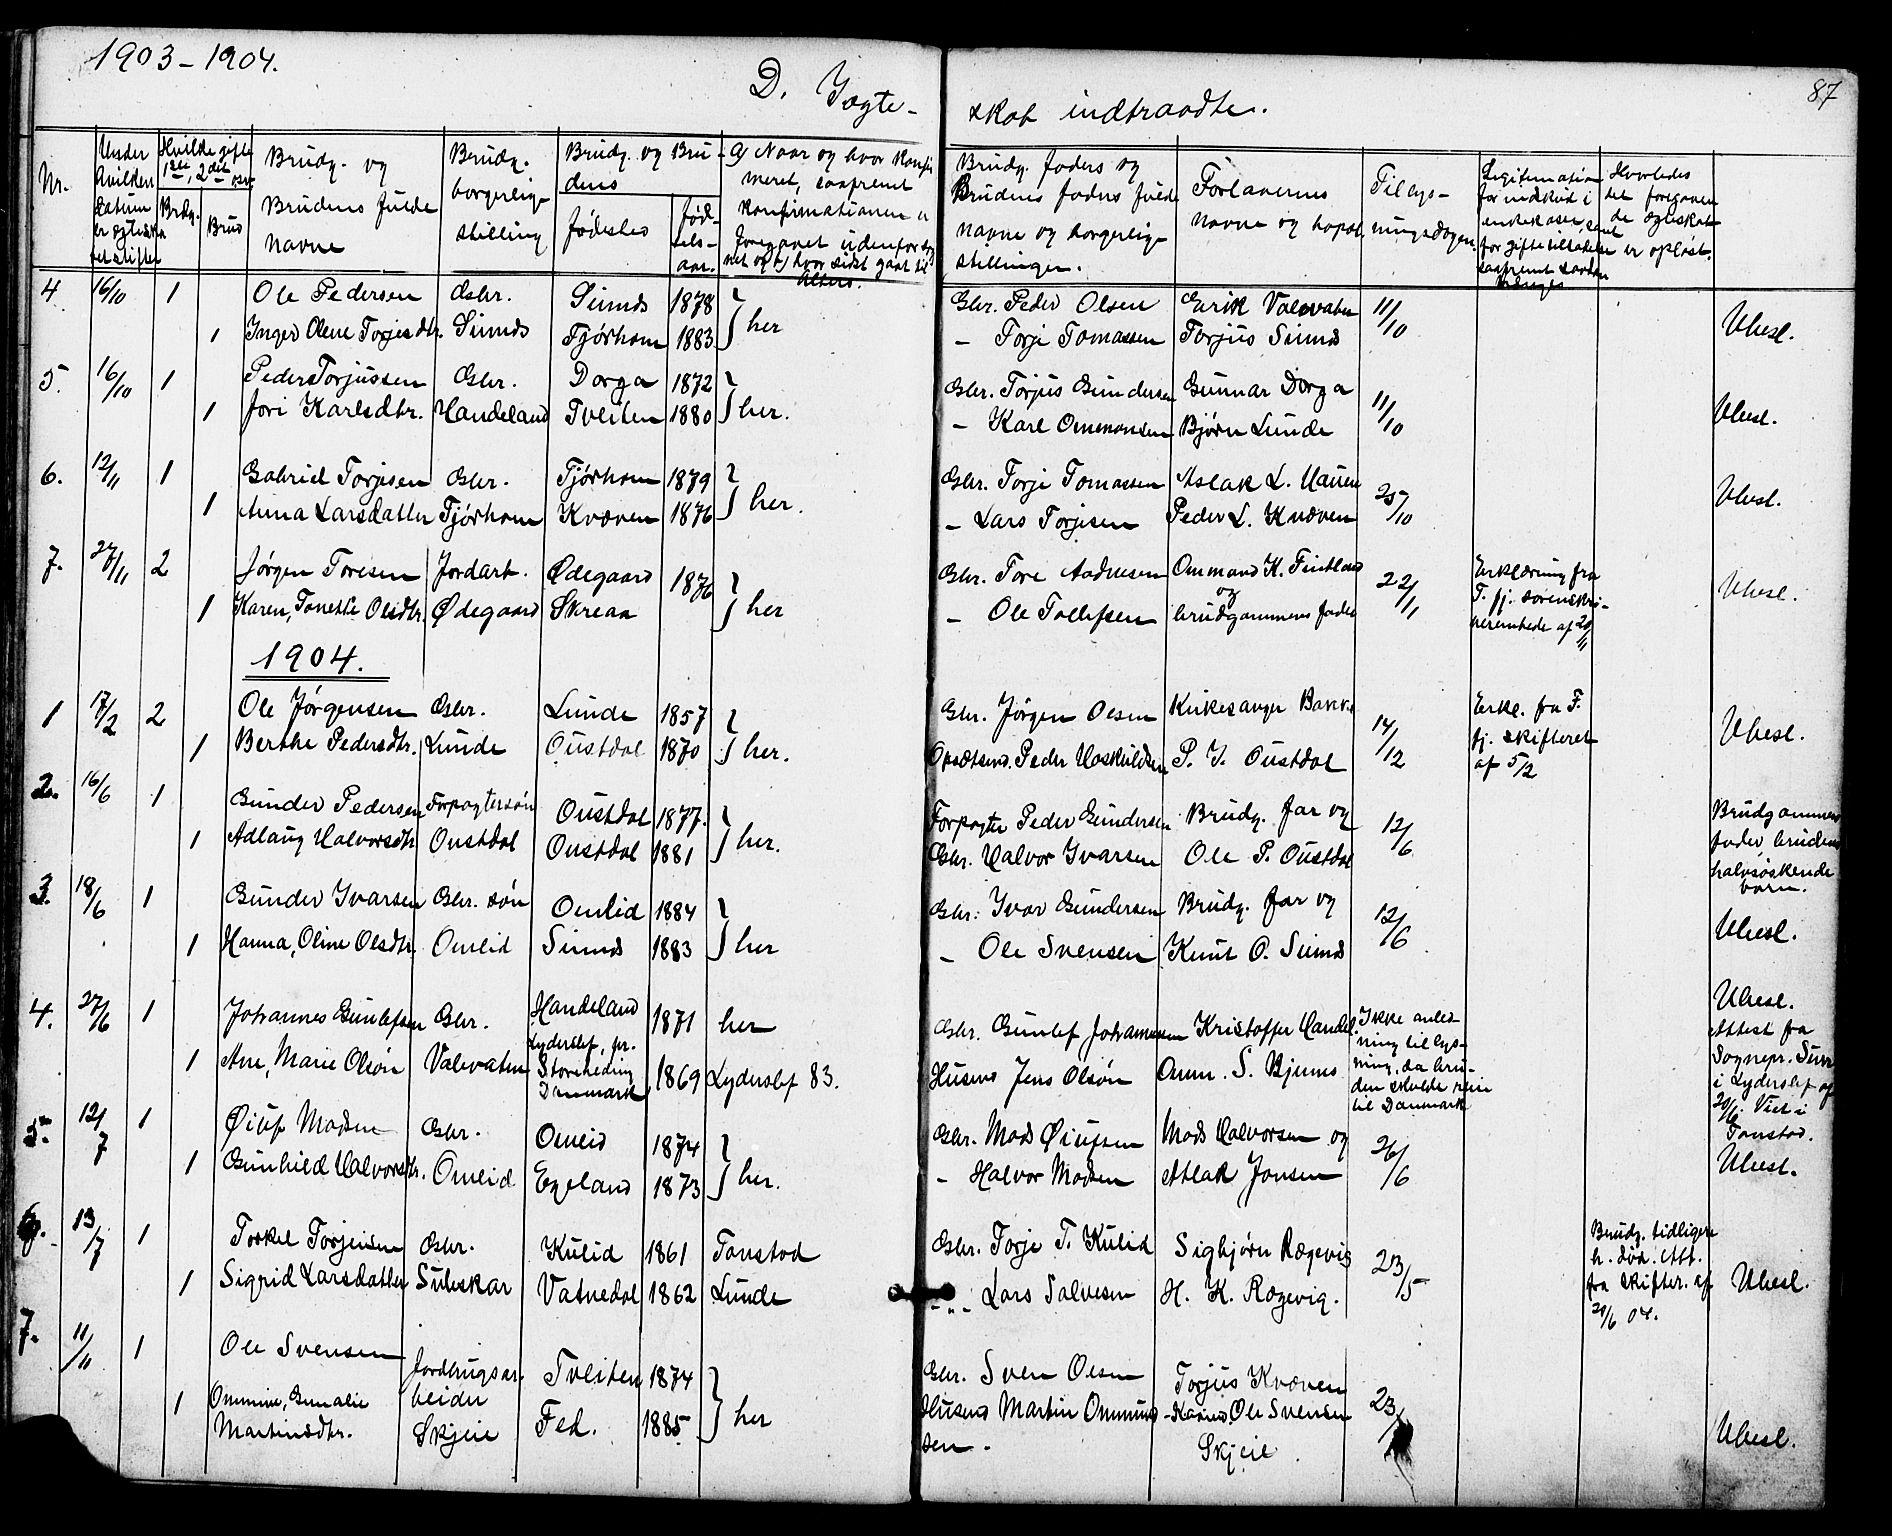 1903-1904.
D. Ægte-
skab indtraadte.
87
Nr.
Under hvilken datum er ægteska bet stiftet
Hvilke gifte 1ste, 2det osv.
Brdg.
Brud
Brudg. og Brudens fulde navne
Brudg. borgerlige stilling
Brudg. og Brudens
fødested
fødsels-aar.
a) Naar og hvor konfirmeret, saafremt konfirmationen er foregaaet udenfor sognet og b) hvor sidst gaaet til Alters.
Brudg. faders og Brudens faders fulde navne og borgerlige stillinger.
Forlovernes navne og bopæl.
Tillysningsdagen.
Legitimation for indskud i enkekasse, samt for giftetilladelse saafremt saadan
Hvorledes det foregaaende ægteskab er opløst.
4 16/10 1 Ole Pedersen Gbr. Sinnes 1878 } her Gbr. Peder Olsen Eerik Valevatn 11/10 Ubesl.
1 Inger Olene Torjesdtr. Sinnes Tjørhom 1883 - Torje Tomassen Torjus Sinnes
5. 16/10 1 Peder Torjussen Gbr. Dorga 1872 } her. Gbr. Torjus Gundersen Gunnar Dorga 11/10 Ubesl.
1 Jori Karlsdtr. Handeland Tveiten 1880 - Karl Ommonsen Bjørn Lunde
6. 12/11 1 Gabriel Torjesen Gbr. Tjørhom 1879 } her. Gbr. Torje Tomassen Aslak L. Hauen 25/10 Ubesl.
1 Anna Larsdatter Tjørhom Kvæven 1876 - Lars Torjesen Peder L. Kvæven
7. 27/11 2 Jørgen Toresen Jordart. Ødegaard 1876 } her Gbr. Tore Aadnesen Ommund K. Fintland og 22/11 Erklæring fra F. fj. sorenskriverembede af 20/11 Ubesl.
1 Karen, Tonette Olsdtr. Ødegaard Skreaa - Ole Tollefsen brudgommens fader
1904.
1 17/2 2 Ole Jørgensen Gbr. Lunde 1857 } her. Gbr. Jørgen Olsen Kirkesanger Bakke 14/12 Erkl. fra F. fj. skifteret af 5/2 Ubesl.
1 Berthe Pedersdtr. Lunde Oustdal 1870 Opsidsend. Peder Hoskuldsen P. I. Oustdal
2. 16/6 1 Gunder Pedersen Forpagtersøn Oustdal 1877. } her. Forpagter Peder Gundersen Brudg. far og 12/6 Brudgommens fader, brudens halvsøskende barn.
1 Adlaug Halvorsdtr Oustdal Oustdal 1881 Gbr. Halvor Ivarsen Ole P. Oustdal
3. 18/6 1 Gunder Ivarsen Gbr. søn Omlid 1884 } her Gbr: Ivar Gundersen Brudg. far og 12/6 Ubesl.
1 Hanna, Oline Olsdtr. Omlid Sinnes 1883 - Ole Svensen Knut O. Sinnes
4. 27/6 1 Johannes Gunlefsen Gbr. Handeland 1871 her Gbr. Gunlef Johannesen Kristoffer Handel. Ikke anledning til lysning, da bruden skulde reise til Danmark Ubesl. Attest fra Sognepr. i Lyderslef af 20/6. Viet i Tonstad.
1 Ane, Marie Olsøn Valevatn Lyderslef, pr. Storeheding Danmark 1869 Lyderslef 83. Husmd Jens Olsøn Omm. S. Bjunes
5. 12/7 1 Øiuf Madsen Gbr. Omlid 1874 } her. Gbr. Mads Øiufsen Mads Halvorsen og 26/6 Ubesl.
1 Gunhild Halvorsdtr. Omlid Egeland 1873 - Halvor Madsen Atlak Jonsen
6. 13/7 1 Torkel Torjeisen Gbr. Kulid 1861 Tonstad Gbr. Torje T. Kulid Sigbjørn Rægevig 23/5 Brudg. tidligere h. død. Att. fra skifter. af 20/6 04. Ubesl.
1 Sigrid Larsdatter Suleskar Vatnedal 1862 Lunde -"- Lars Salvesen H. K. Rægevig.
7. 11/11 1 Ole Svensen Jordbrugsarbeider Tveiten 1874 } her Gbr. Sven Olsen Torjus Kvæven 23/ Ubesl.
1 Ommine, Gunalie Martinsdtr. Skjeie Fed. 1885 Husmd Martin Ommundsen. Ole Svensen Skjeie